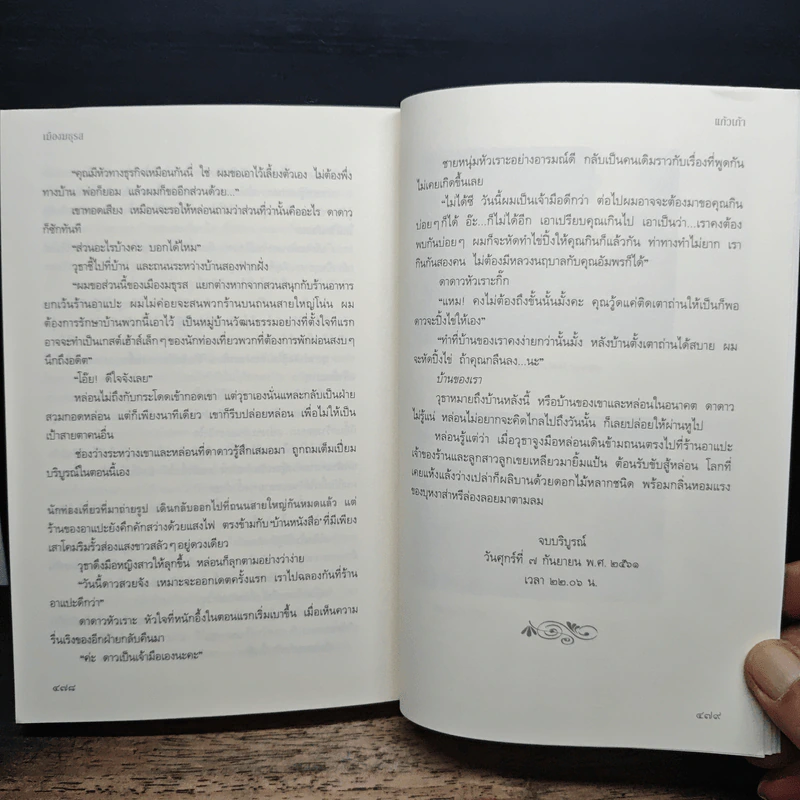 เมืองมธุรส
“คุณมีหัวทางธุรกิจเหมือนกันนี่ ใช่ ผมขอเอาไว้เลี้ยงตัวเอง ไม่ต้องพึ่ง
ทางบ้าน พ่อก็ยอม แล้วผมก็ขออีกส่วนด้วย...”
เขาทอดเสียง เหมือนจะรอให้หล่อนถามว่าส่วนที่ว่านั้นคืออะไร ดาดาว
ก็ซักทันที
“ส่วนอะไรบ้างคะ บอกได้ไหม”
วุธาชี้ไปที่บ้าน และถนนระหว่างบ้านสองฟากฝั่ง
“ผมขอส่วนนี้ของเมืองมธุรส แยกต่างหากจากสวนสนุกกับร้านอาหาร
ยกเว้นร้านอาแปะ ผมไม่ค่อยจะสนพวกร้านบนถนนสายใหญ่โน่น ผม
ต้องการรักษาบ้านพวกนี้เอาไว้ เป็นหมู่บ้านวัฒนธรรมอย่างที่ตั้งใจทีแรก
อาจจะทำเป็นเกสต์เฮ้าส์เล็กๆ ของนักท่องเที่ยวพวกที่ต้องการพักผ่อนสงบๆ
นึกถึงอดีต”
“โอ๊ย! ดีใจจังเลย”
หล่อนไม่ถึงกับกระโดดเข้ากอดเขา แต่วุธาเองนั่นแหละกลับเป็นฝ่าย
สวมกอดหล่อน แต่ก็เพียงนาทีเดียว เขาก็รีบปล่อยหล่อน เพื่อไม่ให้เป็น
เป้าสายตาคนอื่น
ช่องว่างระหว่างเขาและหล่อนที่ดาดาวรู้สึกเสมอมา ถูกถมเต็มเปี่ยม
บริบูรณ์ในตอนนี้เอง
นักท่องเที่ยวที่มาถ่ายรูป เดินกลับออกไปที่ถนนสายใหญ่กันหมดแล้ว แต่
ร้านของอาแปะยังคึกคักสว่างด้วยแสงไฟ ตรงข้ามกับ ‘บ้านหนังสือ’ ที่มีเพียง
เสาโคมริมรั้วส่องแสงขาวสลัวๆ อยู่ดวงเดียว
วุธาดึงมือหญิงสาวให้ลุกขึ้น หล่อนก็ลุกตามอย่างว่าง่าย
“วันนี้ดาวสวยจัง เหมาะจะออกเดตครั้งแรก เราไปฉลองกันที่ร้าน
อาแปะดีกว่า”
ดาดาวหัวเราะ หัวใจที่หนักอึ้งในตอนแรกเริ่มเบาขึ้น เมื่อเห็นความ
รื่นเริงของอีกฝ่ายกลับคืนมา
“ค่ะ ดาวเป็นเจ้ามือเองนะคะ”
๔๗๘
แก้วเก้า
ชายหนุ่มหัวเราะอย่างอารมณ์ดี กลับเป็นคนเดิมราวกับเรื่องที่พูดกัน
ไม่เคยเกิดขึ้นเลย
“ไม่ได้ซี วันนี้ผมเป็นเจ้ามือดีกว่า ต่อไปผมอาจจะต้องมาขอคุณกิน
บ่อยๆ ก็ได้ อ๊ะ...ก็ไม่ได้อีก เอาเปรียบคุณเกินไป เอาเป็นว่า...เราคงต้อง
พบกันบ่อยๆ ผมก็จะหัดทำไข่ปิ้งให้คุณกินก็แล้วกัน ท่าทางทำไม่ยาก เรา
กินกันสองคน ไม่ต้องมีหลวงนฤบาลกับคุณอัมพรก็ได้”
ดาดาวหัวเราะกิ๊ก
“แหม! คงไม่ต้องถึงขั้นนั้นมั้งคะ คุณวู้ดแค่ติดเตาถ่านให้เป็นก็พอ
ดาวจะปิ้งไข่ให้เอง”
“ทำที่บ้านของเราคงง่ายกว่านั้นมั้ง หลังบ้านตั้งเตาถ่านได้สบาย ผม
จะหัดปิ้งไข่ ถ้าคุณกลืนลง...นะ”
บ้านของเรา
วุธาหมายถึงบ้านหลังนี้ หรือบ้านของเขาและหล่อนในอนาคต ดาดาว
ไม่รู้แน่ หล่อนไม่อยากจะคิดไกลไปถึงวันนั้น ก็เลยปล่อยให้ผ่านหูไป
หล่อนรู้แต่ว่า เมื่อวุธาจูงมือหล่อนเดินข้ามถนนตรงไปที่ร้านอาแปะ
เจ้าของร้านและลูกสาวลูกเขยเหลียวมายิ้มแป้น ต้อนรับขับสู้หล่อน โลกที่
เคยแห้งแล้งว่างเปล่าก็ผลิบานด้วยดอกไม้หลากชนิด พร้อมกลิ่นหอมแรง
ของบุหงาส่าหรีล่องลอยมาตามลม
จบบริบูรณ์
วันศุกร์ที่ ๗ กันยายน พ.ศ. ๒๕๖๑
เวลา ๒๒.๐๖ น.
๔๗๙